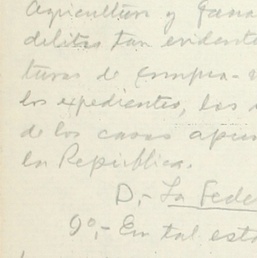 Agricultura y Gana
delitos tan evidente
turas de compra-v
los expedientes, los
de los casos apun
la República.
D,- La Fede
9º,- En tal esta